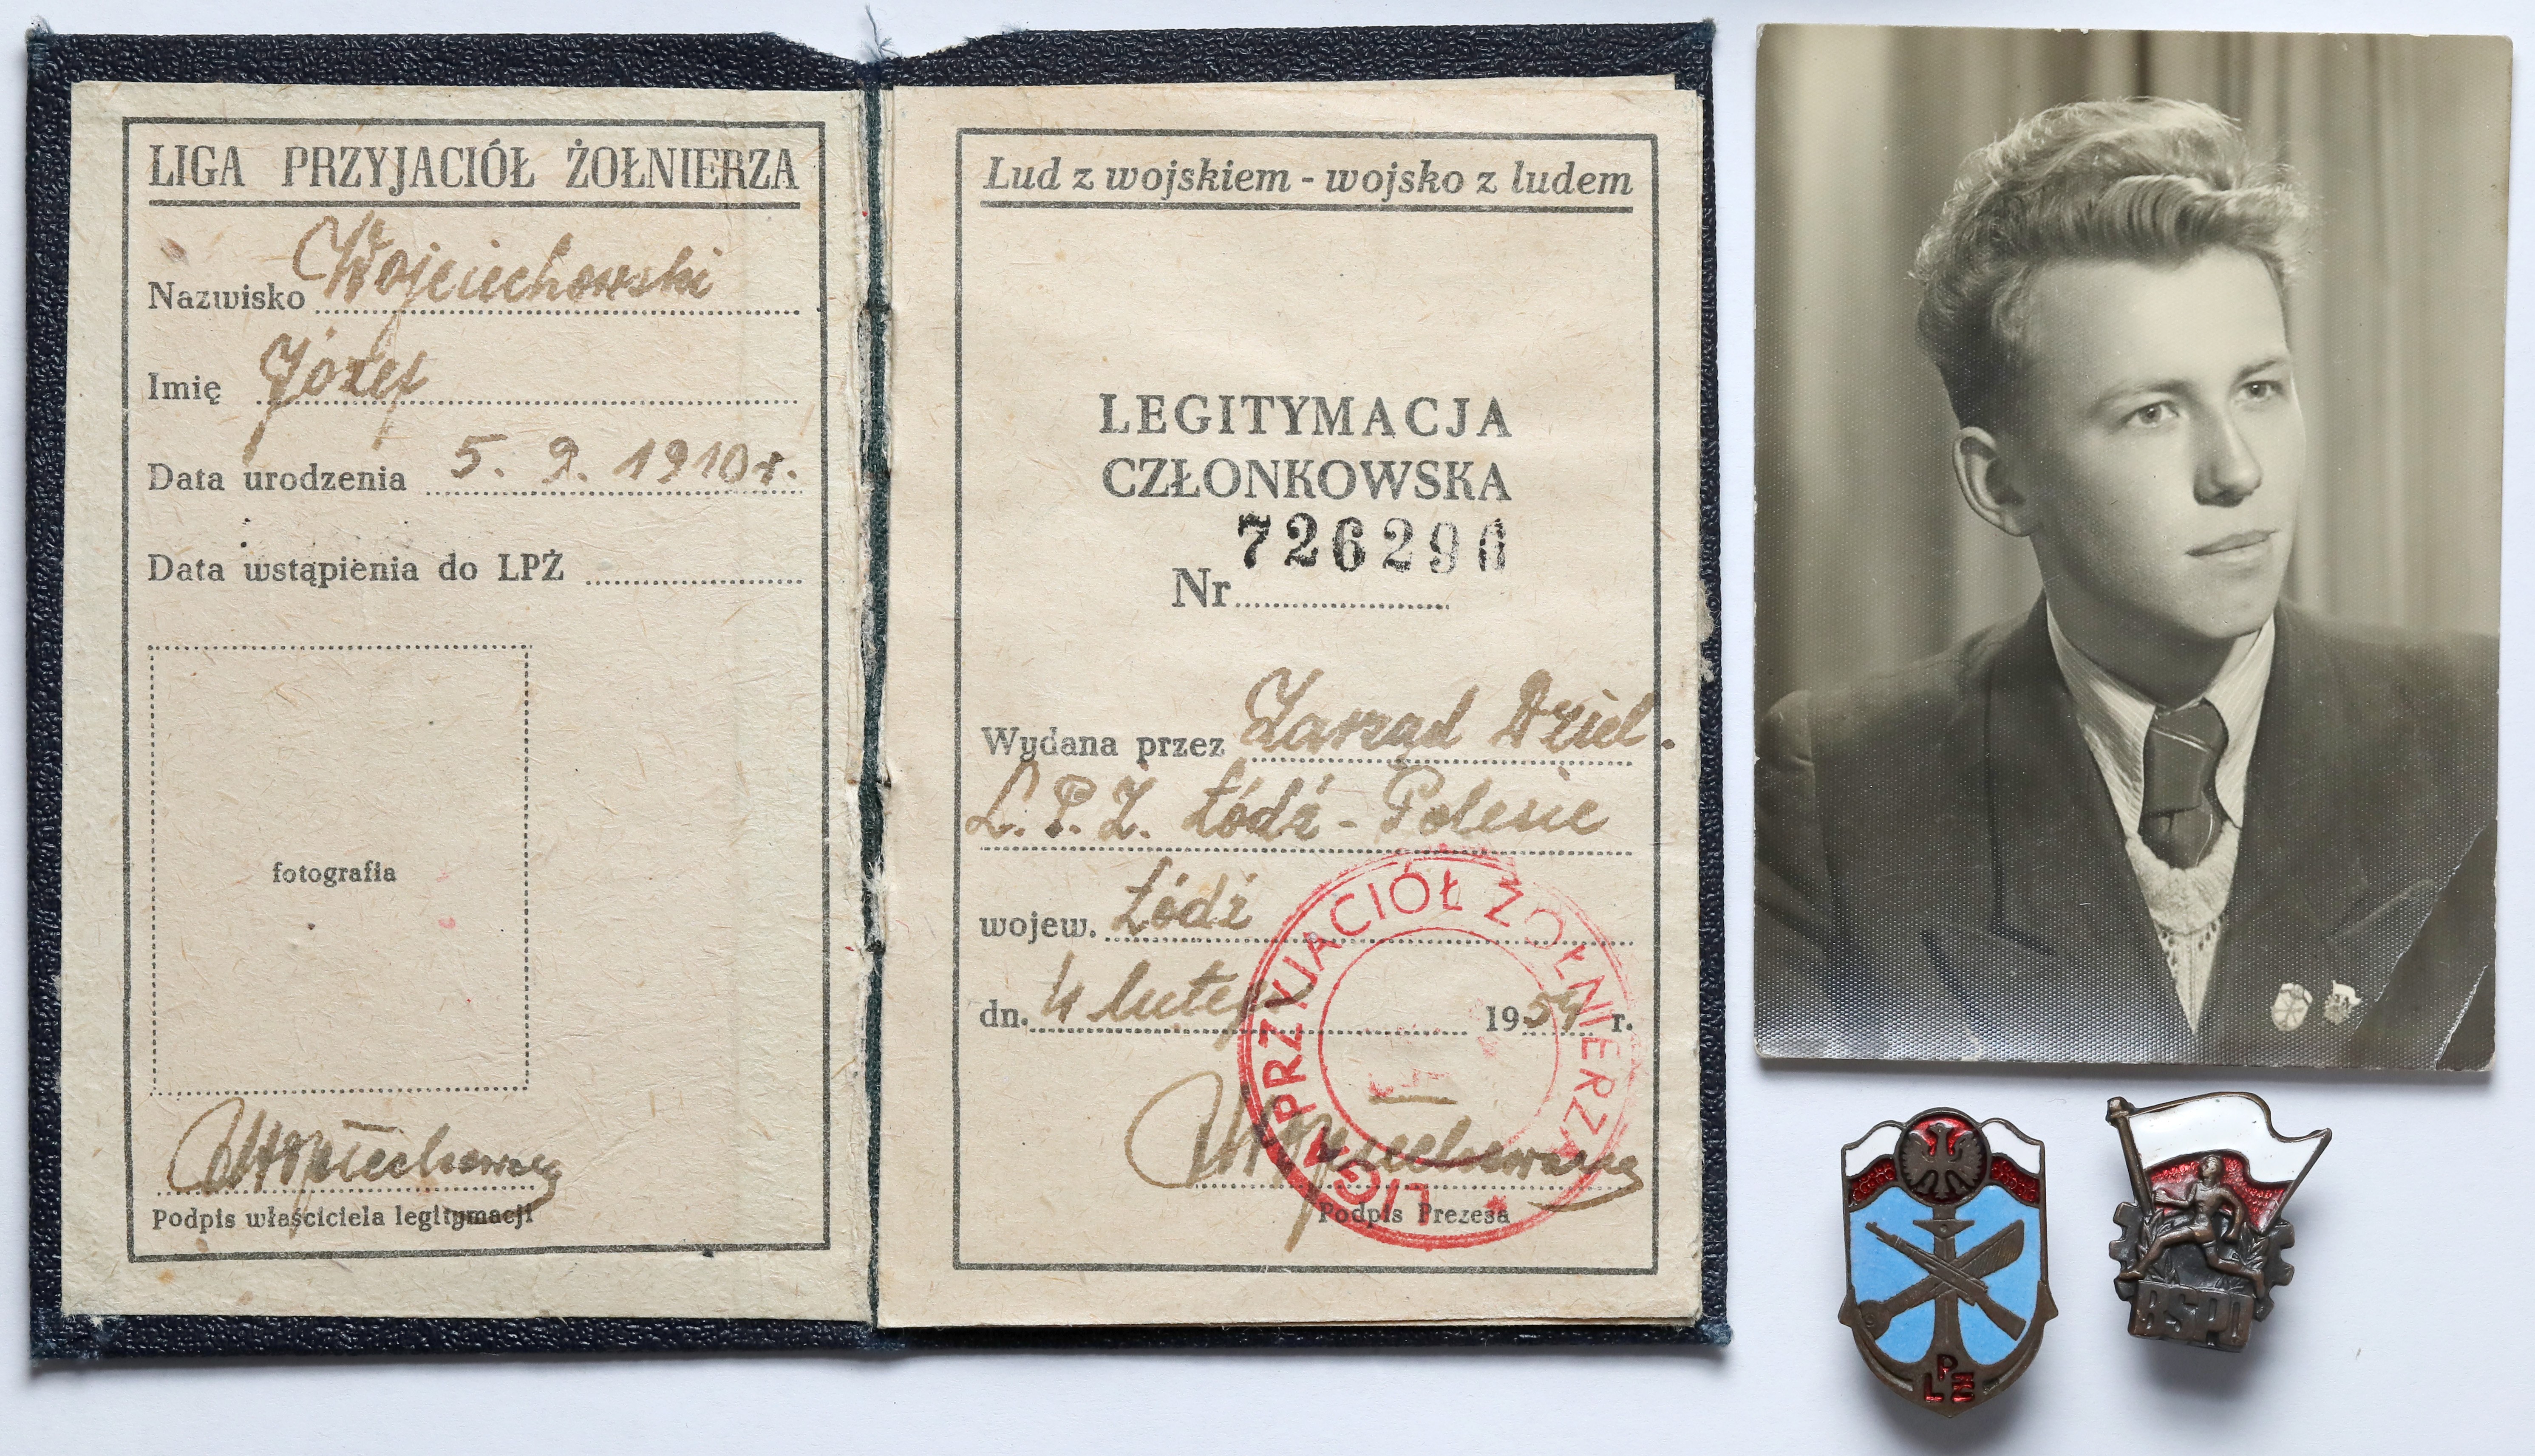 LIGA PRZYJACIÓŁ ŻOŁNIERZA
Nazwisko Wojciechowski
Imię Józef
Data urodzenia 5. 9. 1910 r.
Data wstąpienia do LPŻ
fotografia
Podpis właściciela legitymacji
Lud z wojskiem - wojsko z ludem
LEGITYMACJA
CZŁONKOWSKA
726296
Nr
Wydana przez Zarząd Dziel.
L.P.Ż. Łódź - Polesie
wojew. Łódź
dn. 4 lutego 1954 r.
LIGA PRZYJACIÓŁ ŻOŁNIERZA
Podpis Prezesa
LPŻ
BSPO